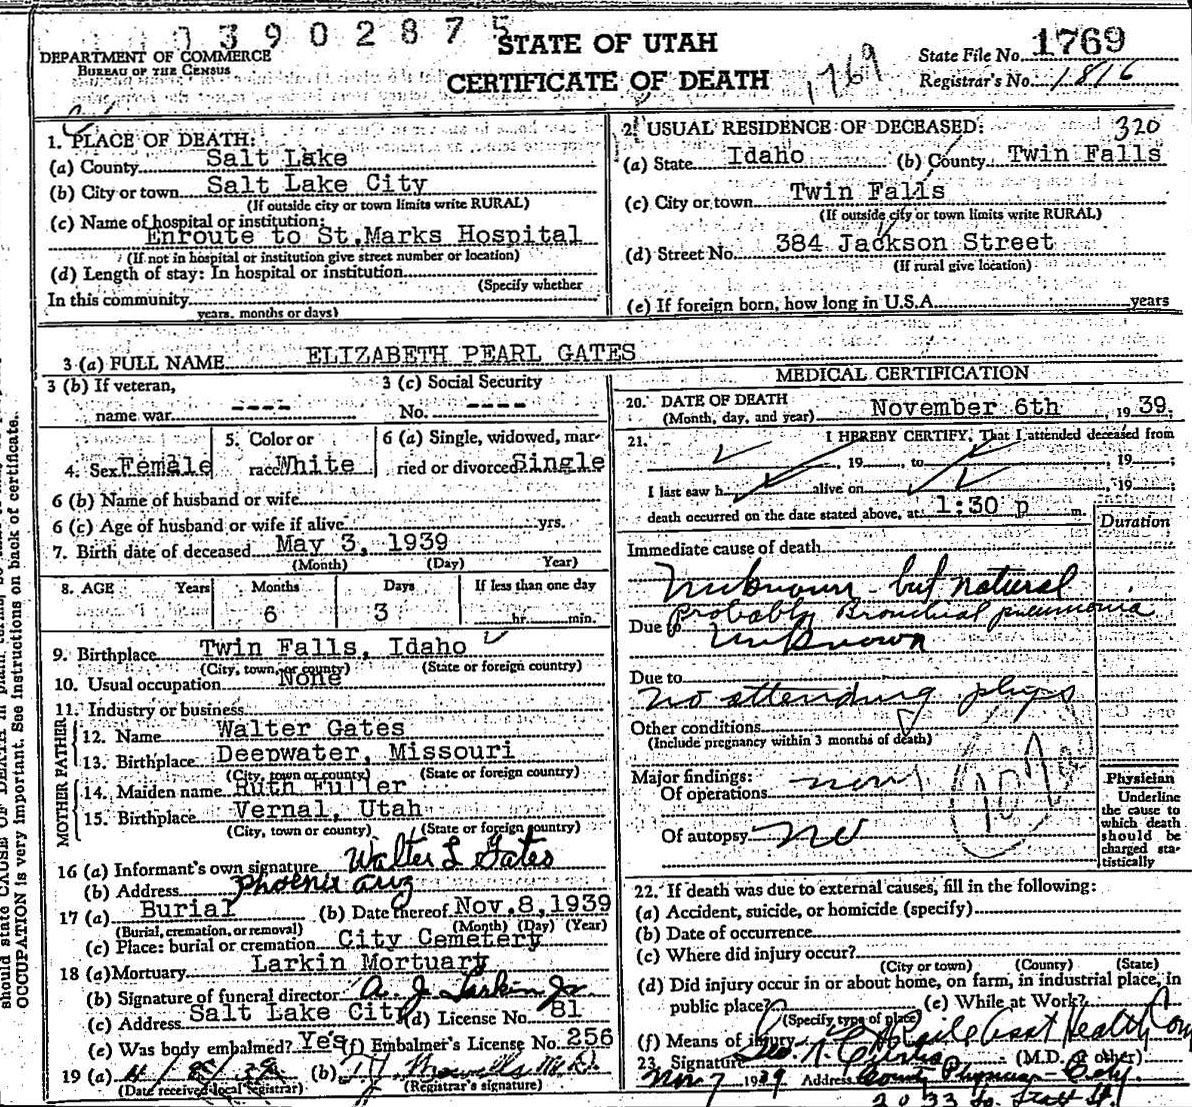 0390287 5
DEPARTMENT OF COMMERCE
BUREAU OF THE CENSUS
STATE OF UTAH
CERTIFICATE OF DEATH
1769
State File No. 1769
Registrar's No. 1816
1. PLACE OF DEATH:
(a) County Salt Lake
(b) City or town Salt Lake City
(If outside city or town limits write RURAL)
(c) Name of hospital or institution:
Enroute to St.Marks Hospital
(If not in hospital or institution give street number or location)
(d) Length of stay: In hospital or institution
(Specify whether
In this community
years, months or days)
2. USUAL RESIDENCE OF DECEASED: 320
(a) State Idaho (b) County Twin Falls
(c) City or town Twin Falls
(If outside city or town limits write RURAL)
(d) Street No. 384 Jackson Street
(If rural give location)
(e) If foreign born, how long in U.S.A. years
3 (a) FULL NAME ELIZABETH PEARL GATES
3 (b) If veteran,
name war ----
3 (c) Social Security
No. ----
4. Sex Female
5. Color or
race White
6 (a) Single, widowed, mar-
ried or divorced Single
6 (b) Name of husband or wife
6 (c) Age of husband or wife if alive yrs.
7. Birth date of deceased May 3, 1939
(Month) (Day) (Year)
8. AGE Years Months Days If less than one day
6 3 hr. min.
9. Birthplace Twin Falls, Idaho
(City, town, or county) (State or foreign country)
10. Usual occupation None
11. Industry or business
FATHER
12. Name Walter Gates
13. Birthplace Deepwater, Missouri
(City, town or county) (State or foreign country)
MOTHER
14. Maiden name Ruth Fuller
15. Birthplace Vernal, Utah
(City, town or county) (State or foreign country)
16 (a) Informant's own signature Walter L Gates
(b) Address Phoenix Ariz
17 (a) Burial (b) Date thereof Nov.8,1939
(Burial, cremation, or removal) (Month) (Day) (Year)
(c) Place: burial or cremation City Cemetery
18 (a) Mortuary Larkin Mortuary
(b) Signature of funeral director A. J. Larkin Jr.
(c) Address Salt Lake City (d) License No. 81
(e) Was body embalmed? Yes (f) Embalmer's License No. 256
19 (a) (b) M.D.
(Date received local registrar) (Registrar's signature)
MEDICAL CERTIFICATION
20. DATE OF DEATH
(Month, day, and year) November 6th, 1939.
21. I HEREBY CERTIFY, That I attended deceased from
, 19 , to , 19 ;
I last saw h alive on , 19 ;
death occurred on the date stated above, at 1:30 p m.
Duration
Immediate cause of death
Unknown - but natural
probably Bronchial pneumonia
Due to Unknown
Due to
No attending phys
Other conditions
(Include pregnancy within 3 months of death)
107a
Major findings:
Of operations none
Of autopsy no
Physician
Underline
the cause to
which death
should be
charged sta-
tistically
22. If death was due to external causes, fill in the following:
(a) Accident, suicide, or homicide (specify)
(b) Date of occurrence
(c) Where did injury occur?
(City or town) (County) (State)
(d) Did injury occur in or about home, on farm, in industrial place, in
public place? (e) While at Work?
(Specify type of place)
(f) Means of injury Asst Health Com
23. Signature Geo. N. Curtis (M.D. or other)
Nov 7 1939 Address County Physician - City.
2033 So. State St.
should state CAUSE OF DEATH in plain terms,
OCCUPATION is very important. See instructions on back of certificate.